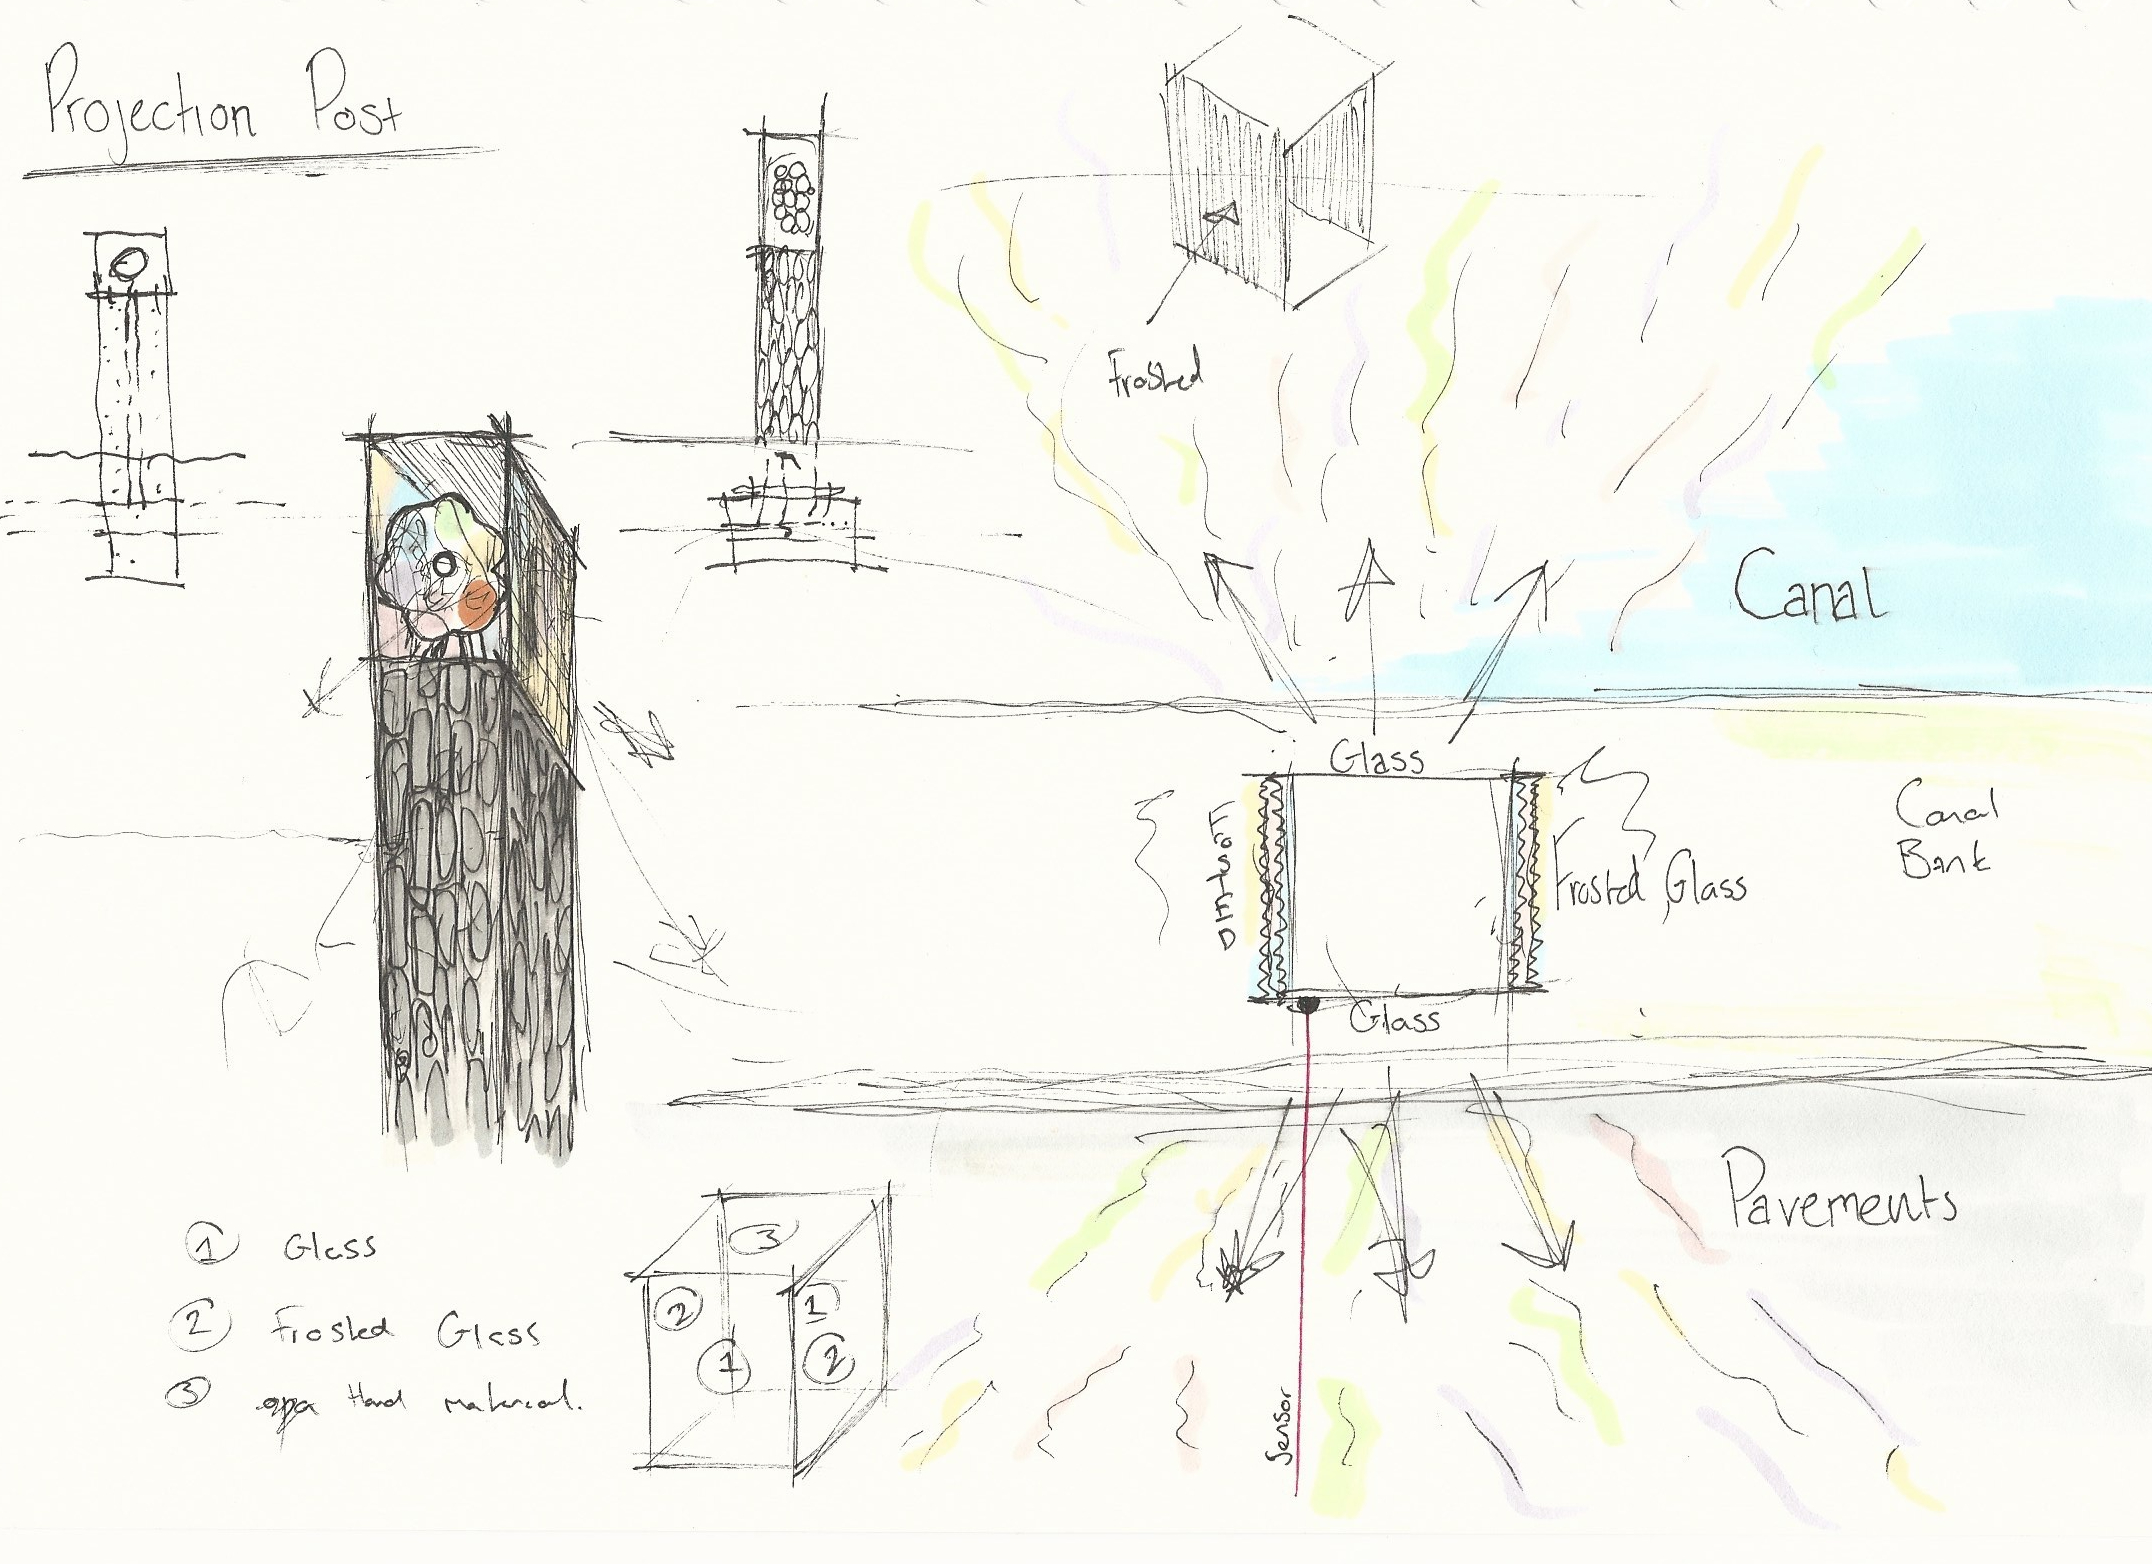 Projection Post
Frosted
Canal
Glass
FrosTED
Frosted Glass
Canal
Bank
Glass
Pavements
Sensor
1 Glass
2 Frosted Glass
3 Hard material.
3
2
1
1
2